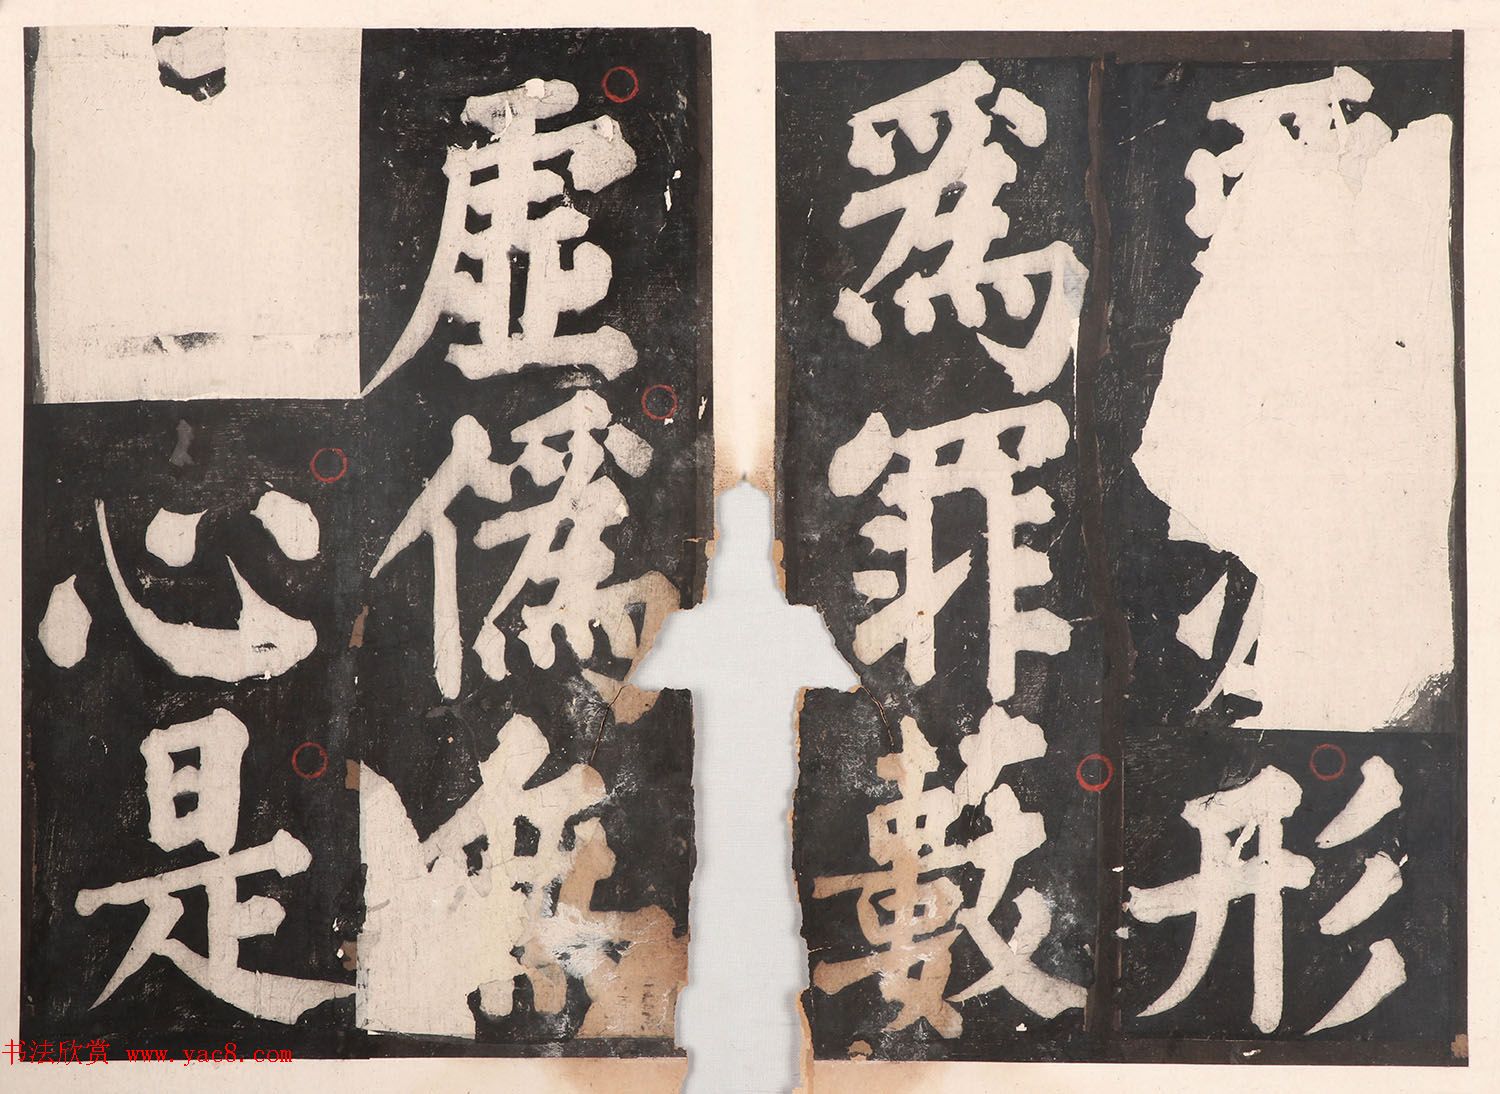 形
爲罪藪
虛僞無
心是
书法欣赏 www.yac8.com